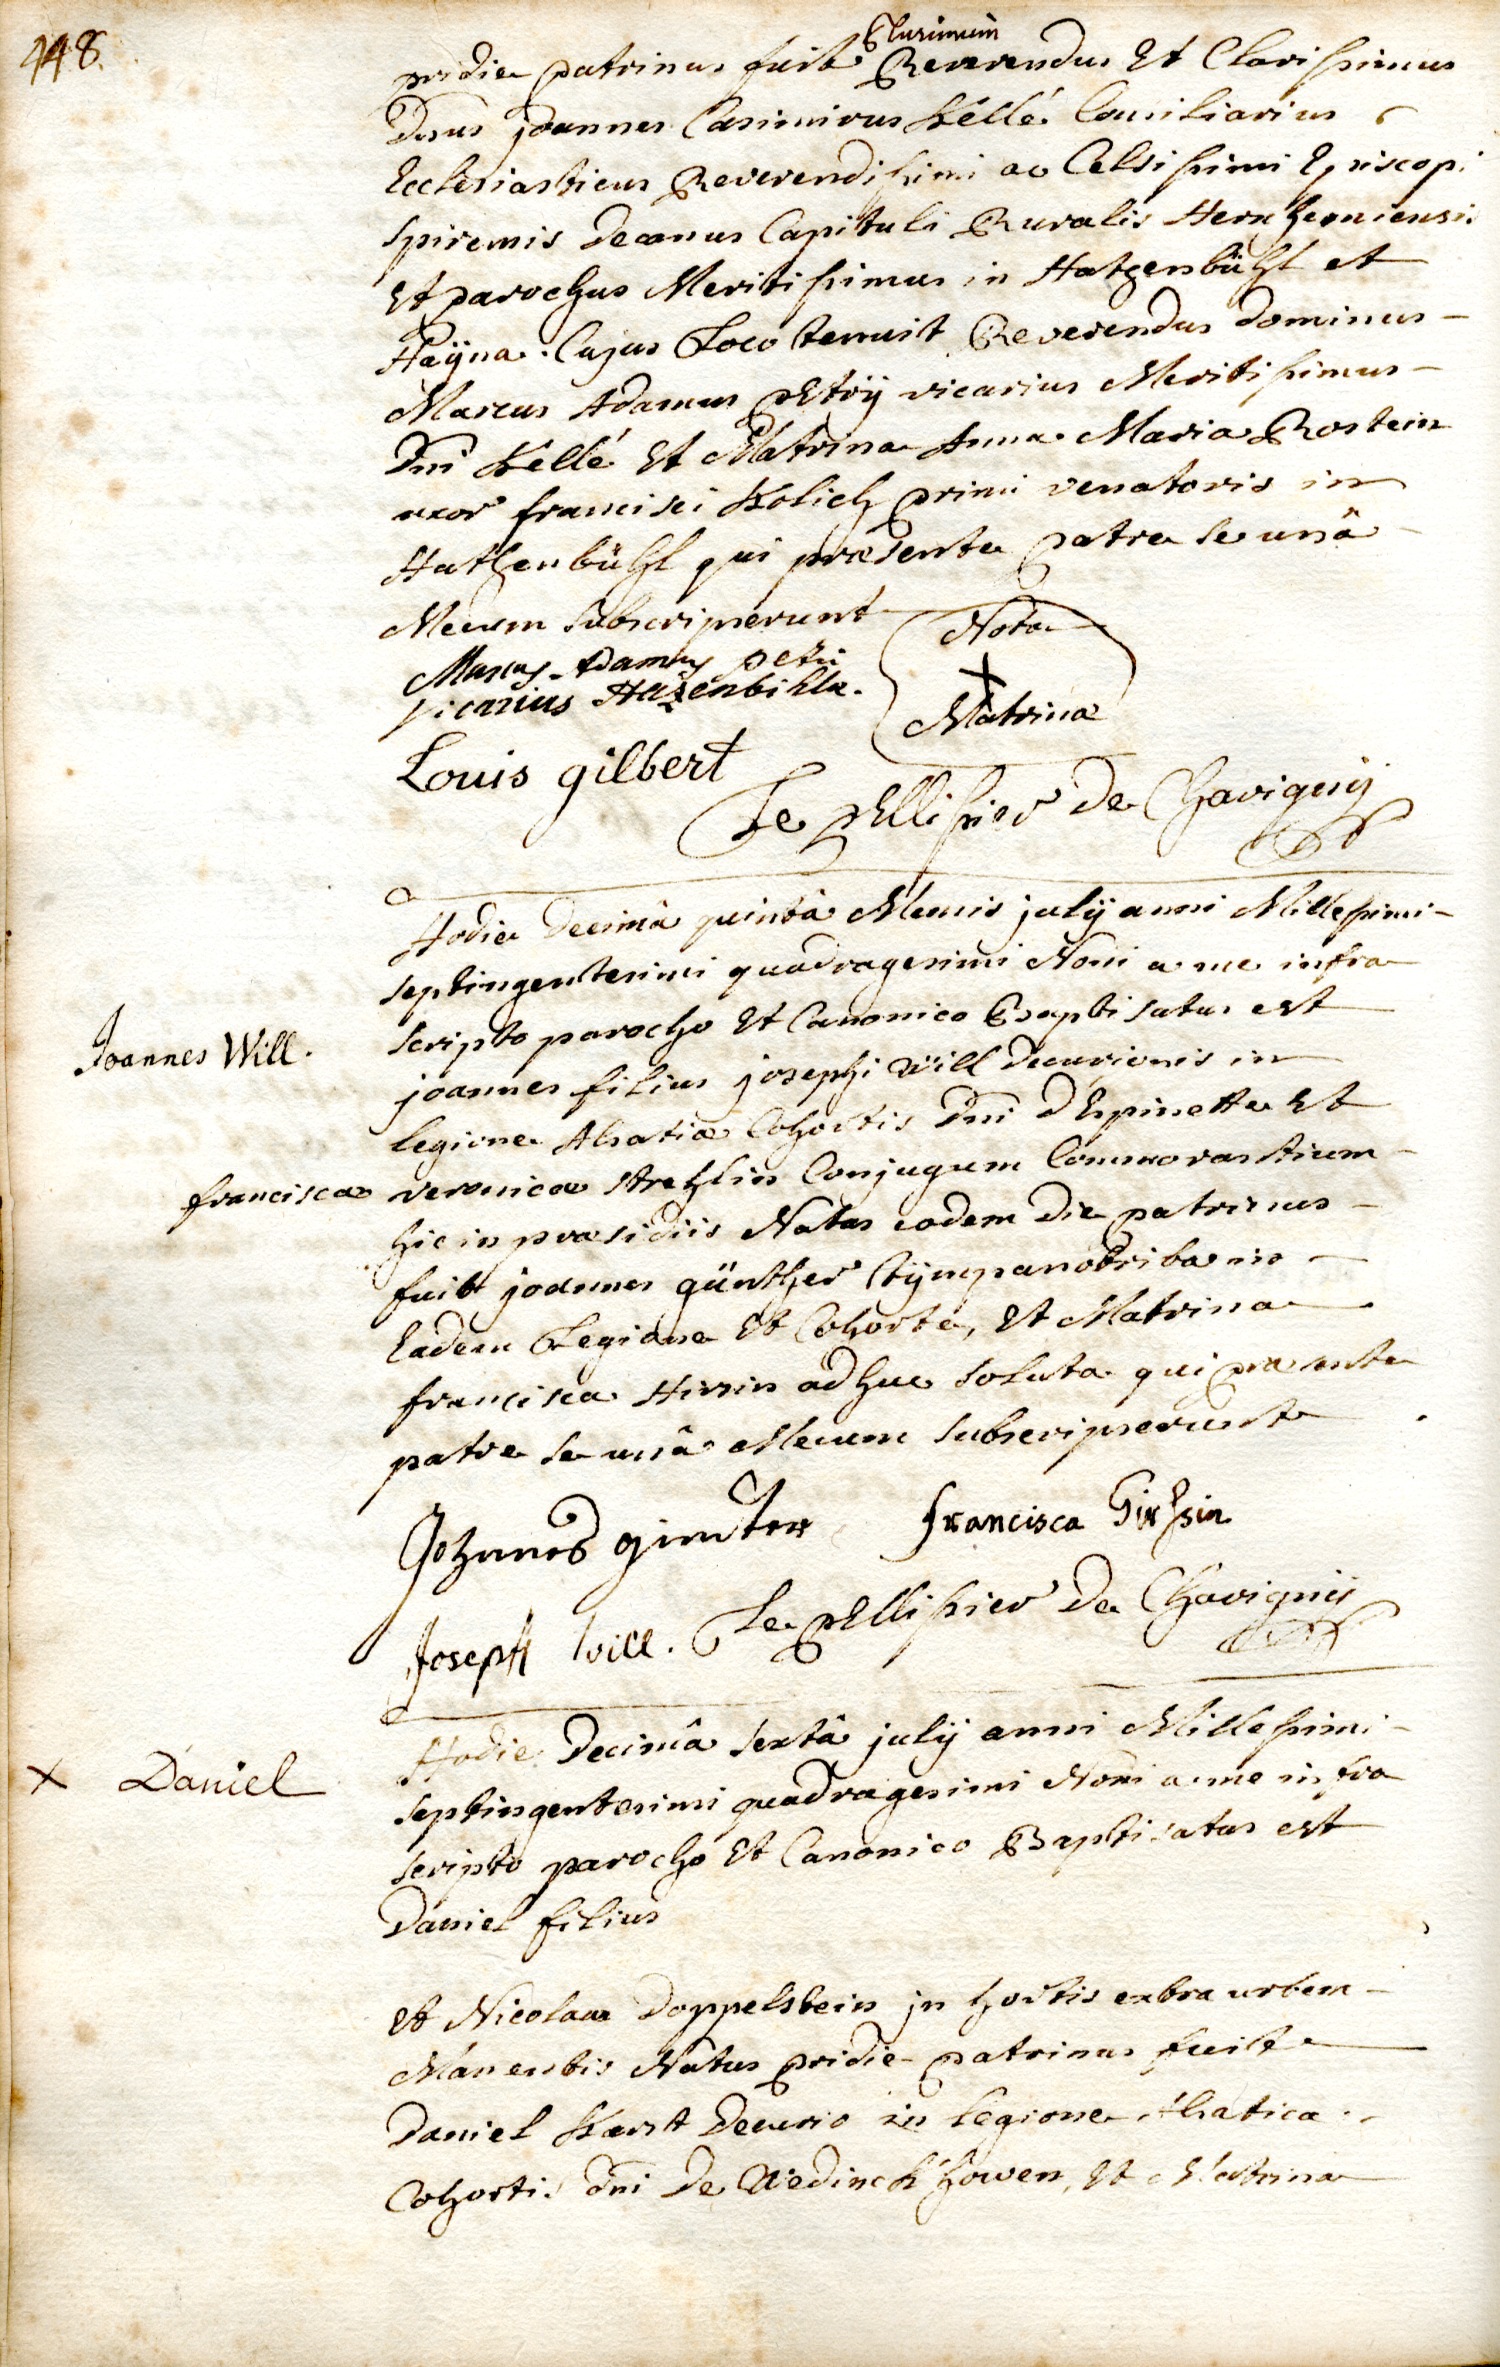 448.
pridie patrinus fuit Plurimum Reverendus Et Clarissimus
Dnus joannes Casimirus Kellé Consiliarius
Ecclesiasticus Reverendissimi ac Celsissimi Episcopi
Spirensis decanus Capituli Ruralis Hernheimiensis
Et parochus Meritissimus in Hatzenbühl et
Haÿna. Cujus Loco tenuit Reverendus dominus
Marcus Adamus pEtrÿ vicarius Meritissimus
Dni Kellé Et Matrina Anna Maria Rostein
uxor francisci Kolich primi venatoris in
Hatzenbühl qui præsente patre se unâ
Mecum subscripserunt
Nota
X
Matrinæ
Marcus Adamus petri
vicarius Hazenbihlæ.
Louis gilbert
Le pEllissier De Chavignÿ
Hodie Decimâ quintâ Mensis julÿ anni Millesimi
septingentesimi quadragesimi Noni a me infra
scripto parocho Et Canonico Baptisatus est
Joannes Will.
joannes filius josephi Will decurionis in
legione Alsatiæ Cohortis Dni d'Espinette Et
franciscæ veronicæ strehlin Conjugum Commorantium
hic in præsidiis Natus eodem die patrinus
fuit joannes günther tÿmpanotriba in
Eadem Legione Et Cohorte, Et Matrina
francisca Hirsin adhuc soluta qui præsente
patre se unâ Mecum subscripserunt
Johannes ginter francisca Girhsin
Joseph Will. Le pEllissier De Chavignÿ
Hodie Decimâ sextâ julÿ anni Millesimi
X Daniel
septingentesimi quadragesimi Noni a me infra
scripto parocho Et Canonico Baptisatus est
Daniel filius
Et Nicolaæ Doppelstein in hortis extra urbem
Manentis Natus pridie patrinus fuit
Daniel Karst Decurio in legione Alsaticæ
Cohortis Dni De Wedinck howen, Et Matrina